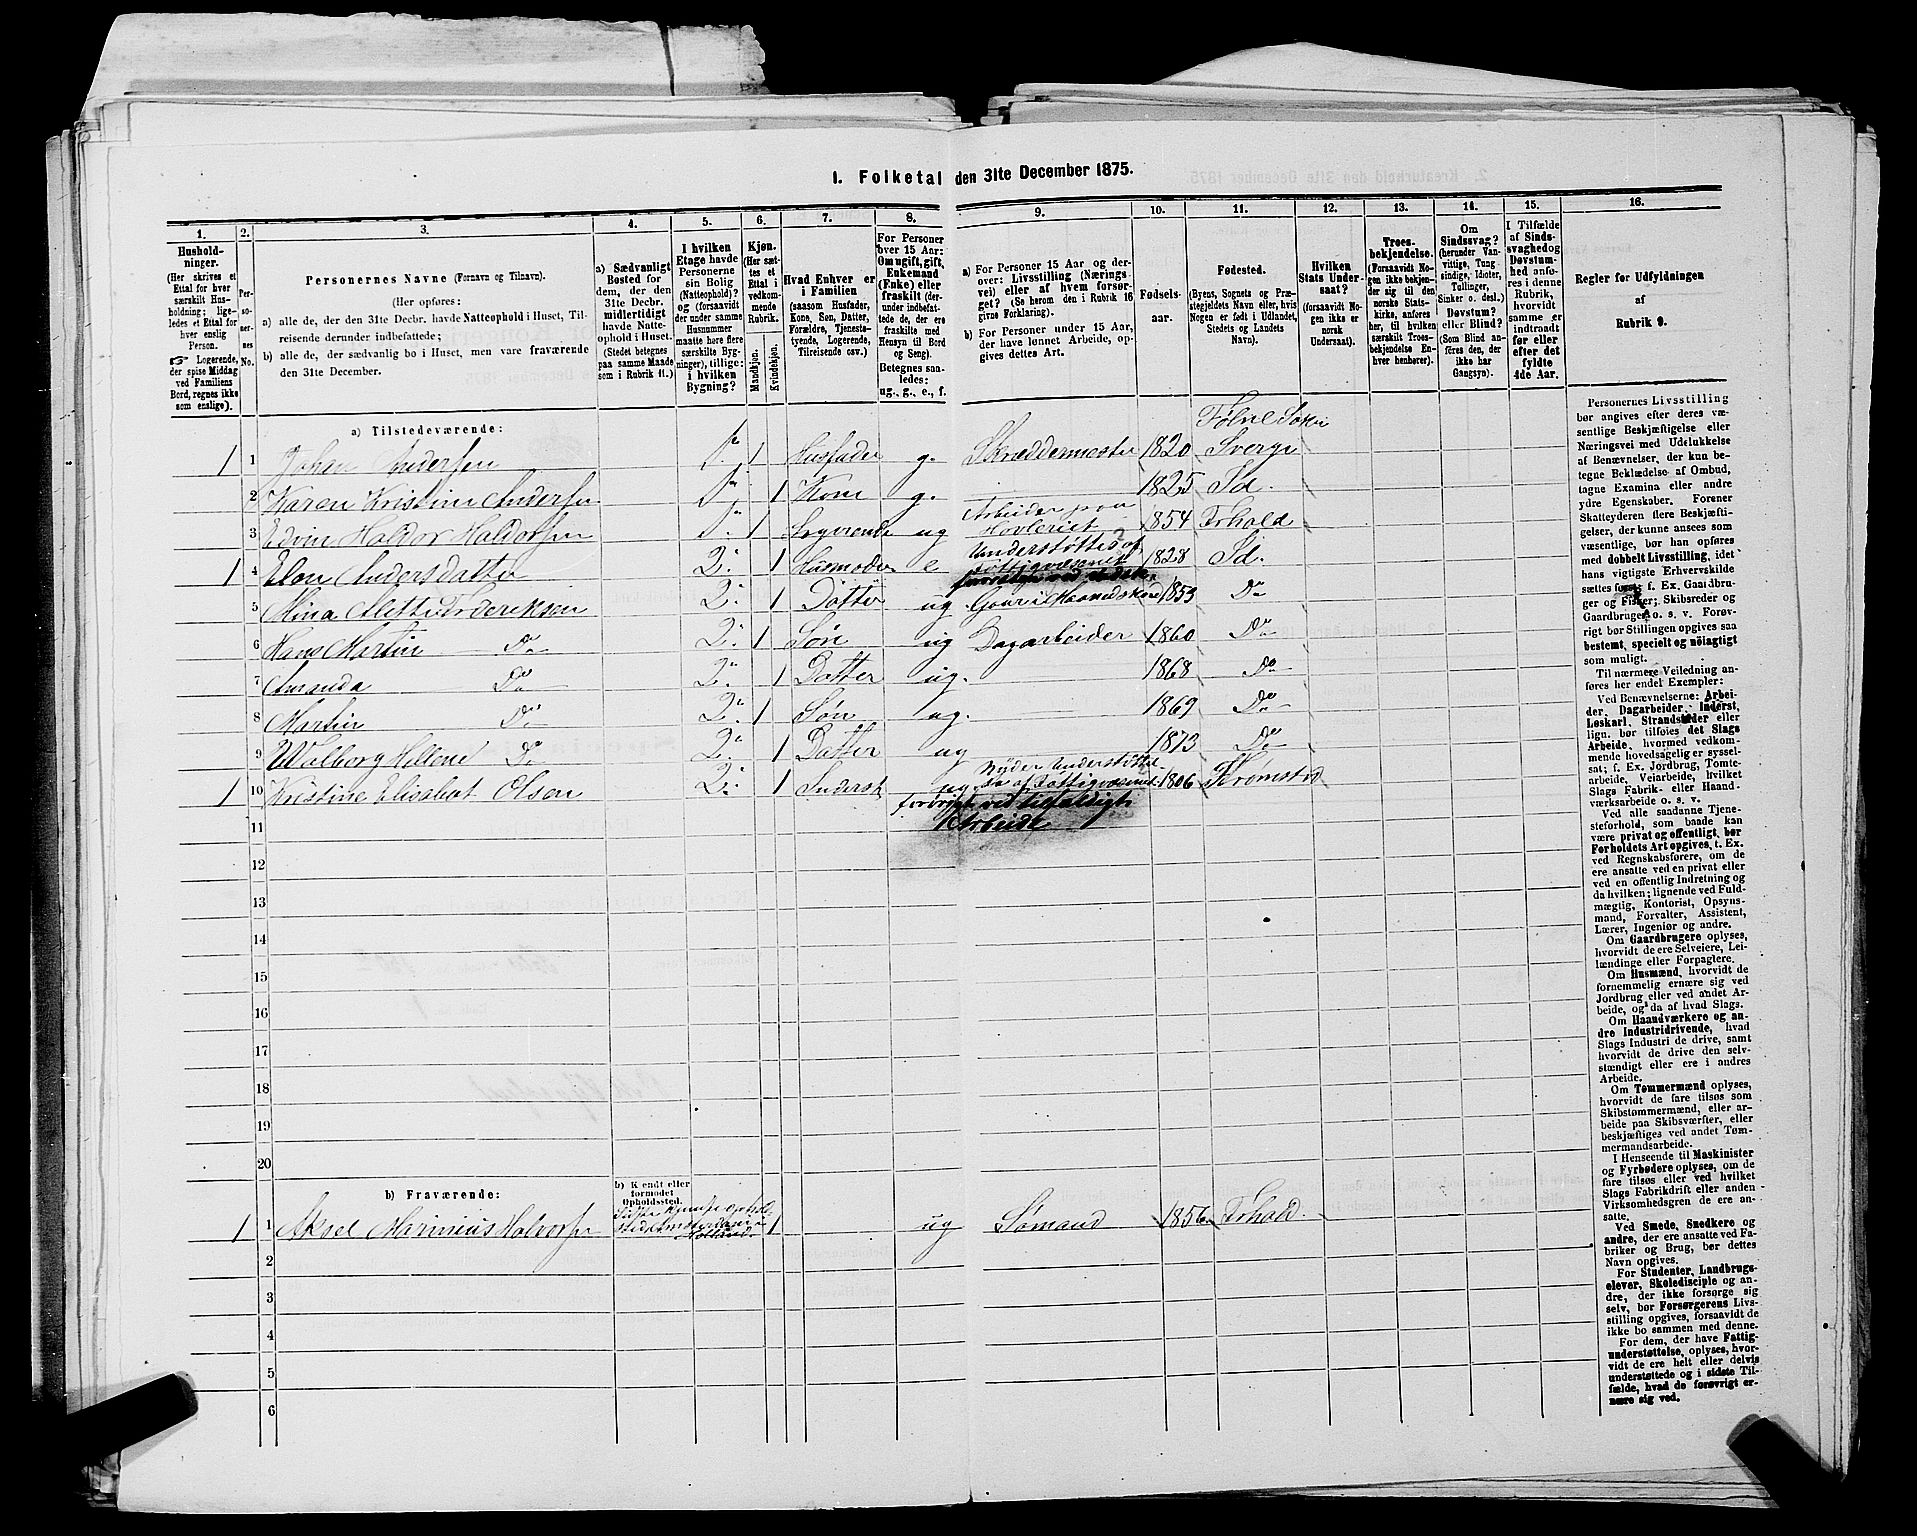 1. Folketal den 31te December 1875.
1.
2.
3.
4.
5.
6.
7.
8.
9.
10.
11.
12.
13.
14.
15.
16.
Husholdninger.
(Her skrives et
Ettal for hver
særskilt Husholdning;
ligeledes et Ettal for
hver enslig
Person.
☞ Logerende,
der spise Middag
ved Familiens
Bord, regnes ikke
som enslige).
Personernes
No.
Personernes Navne (Fornavn og Tilnavn).
(Her opføres:
a) alle de, der den 31te Decbr. havde Natteophold i Huset, Tilreisende derunder indbefattede;
b) alle de, der sædvanlig bo i Huset, men vare fraværende
den 31te December.
a) Sædvanligt
Bosted for
dem, der den
31te Decbr.
midlertidigt
havde Natteophold i Huset.
(Stedet betegnes
paa samme Maade
som i Rubrik 11.)
I hvilken
Etage havde
Personerne
sin Bolig
(Natteophold)?
og (forsaavidt
der under samme
Husnummer
maatte høre flere
særskilte Bygninger), tillige:
i hvilken
Bygning?
Kjøn.
(Her sættes et
Ettal i
vedkommende
Rubrik.
Mandkjøn.
Kvindekjøn.
Hvad Enhver er
i Familien
(saasom Husfader,
Kone, Søn, Datter,
Forældre, Tjenestetyende, Logerende,
Tilreisende osv.)
For Personer
over 15 Aar:
Om ugift, gift,
Enkemand
(Enke) eller
fraskilt (derunder indbefattede, der ere
fraskilte med
Hensyn til Bord
og Seng).
Betegnes saaledes:
ug., g., e., f.
a) For Personer 15 Aar og derover: Livsstilling (Næringsvei) eller af hvem forsørget? (Se herom den i Rubrik 16
givne Forklaring).
b) For Personer under 15 Aar,
der have lønnet Arbeide, opgives dettes Art.
Fødselsaar.
Fødested.
(Byens, Sognets og Præstegjeldets Navn eller, hvis
Nogen er født i Udlandet,
Stedets og Landets
Navn).
Hvilken
Stats Undersaat?
(forsaavidt Nogen ikke er
norsk
Undersaat).
Troesbekjendelse.
(Forsaavidt Nogen ikke bekjender sig til den
norske Statskirke, anføres
her, til hvilken
særskilt Troesbekjendelse Enhver henhører).
Om
Sindssvag?
(herunder Vanvittige, Tungsindige, Idioter,
Tullinger,
Sinker o. desl.)
Døvstum?
eller Blind?
(Som Blind anføres den, der
ikke har
Gangsyn).
I Tilfælde
af Sindssvaghed og
Døvstumhed anføres i denne
Rubrik,
hvorvidt
samme er
indtraadt
før eller
efter det
fyldte
4de Aar.
Regler for Udfyldningen
af
Rubrik 9.
a) Tilstedeværende:
1 1 Johan Andersen 1. 1 Husfader g. Skræddermester 1820 Sverge
2 Karen Kristine Andersen 1 Kone g. 1825 Id.
3 Edvin Haldor Haldorsen 1 Logerende ug Arbeider paa Hovleriet 1854 Frhald
1 4 Elen Andersdatter 2. 1 Husmoder e Understøttes af Fattigvæsenet 1828 Id.
5 Mina Mette Frederiksen 2. 1 Datter ug Gaar i Haanedskole 1853 Do
6 Hans Martin Do 2. 1 Søn ug Dagarbeider 1860 Do
7 Amanda Do 2. 1 Datter ug. 1868 Do
8 Martin Do 2. 1 Søn ug. 1869 Do
9 Walborg Hellene Do 2. 1 Datter ug 1873 Do
1 10 Kristine Elisabet Olsen 2. 1 Inderst ug Nyder Understøttelse af Fattigvæsenet 1806 Strømstad
forøvrigt ved tilfældigt
11 Arbeide
12
13
14
15
16
17
18
19
20
b) Fraværende:
b) Kjendt eller
formodet
Opholdssted.
1 1 Aksel Marinius Halvorsen Amsterdam Holland 1 ug Sømand 1856 Frhald.
2
3
4
5
6
Personernes Livsstilling
bør angives efter deres væsentlige Beskjæftigelse eller
Næringsvei med Udelukkelse
af Benævnelser, der kun betegne Beklædelse af Ombud,
tagne Examina eller andre
ydre Egenskaber. Forener
Skatteyderen flere Beskjæftigelser, der kunne ansees som
væsentlige, bør han opføres
med dobbelt Livsstilling, idet
hans vigtigste Erhvervskilde
sættes først; f. Ex. Gaardbruger og Fisker; Skibsreder og
Gaardbruger o. s. v. Forøvrigt bør Stillingen opgives saa
bestemt, specielt og nøiagtigt
som muligt.
Til nærmere Veiledning anføres her endel Exempler:
Ved Benævnelserne: Arbeider, Dagarbeider, Inderst,
Løskarl, Strandsidder eller
lign. bør tilføies det Slags
Arbeide, hvormed vedkommende hovedsagelig er sysselsat; f. Ex. Jordbrug, Tomtearbeide, Veiarbeide, hvilket
Slags Fabrik- eller Haandværksarbeide o. s. v.
Ved alle saadanne Tjenesteforhold, som baade kan
være privat og offentligt, bør
Forholdets Art opgives, t. Ex.
ved Regnskabsførere, om de
ere ansatte ved en privat eller
ved en offentlig Indretning og
da hvilken; lignende ved Fuldmægtig, Kontorist, Opsynsmand, Forvalter, Assistent,
Lærer, Ingeniør og andre.
Om Gaardbrugere oplyses,
hvorvidt de ere Selveiere, Leilændinge eller Forpagtere.
Om Husmænd, hvorvidt de
fornemmelig ernære sig ved
Jordbrug eller ved andet Arbeide, og da af hvad Slags.
Om Haandværkere og andre Industridrivende, hvad
Slags Industri de drive, samt
hvorvidt de drive den selvstændigt eller ere i andres
Arbeide.
Om Tømmermænd oplyses,
hvorvidt de fare tilsøs som
Skibstømmermænd, eller arbeide paa Skibsværfter, eller
beskjæftiges ved andet Tømmermandsarbeide.
I Henseende til Maskinister
og Fyrbødere oplyses, om de
fare tilsøs eller ved hvilket
Slags Fabrikdrift eller anden
Virksomhedsgren de ere ansatte.
Ved Smede, Snedkere og
andre, der ere ansatte ved Fabriker og Brug, bør dettes
Navn opgives.
For Studenter, Landbrugselever, Skoledisciple og andre, der ikke forsørge sig
selv, bør Forsørgerens Livsstilling opgives, forsaavidt de
ikke bo sammen med denne.
For dem, der have Fattigunderstøttelse, oplyses, hvorvidt de ere helt eller delvis
understøttede og i sidste Tilfælde, hvad de forøvrigt ernære sig ved.